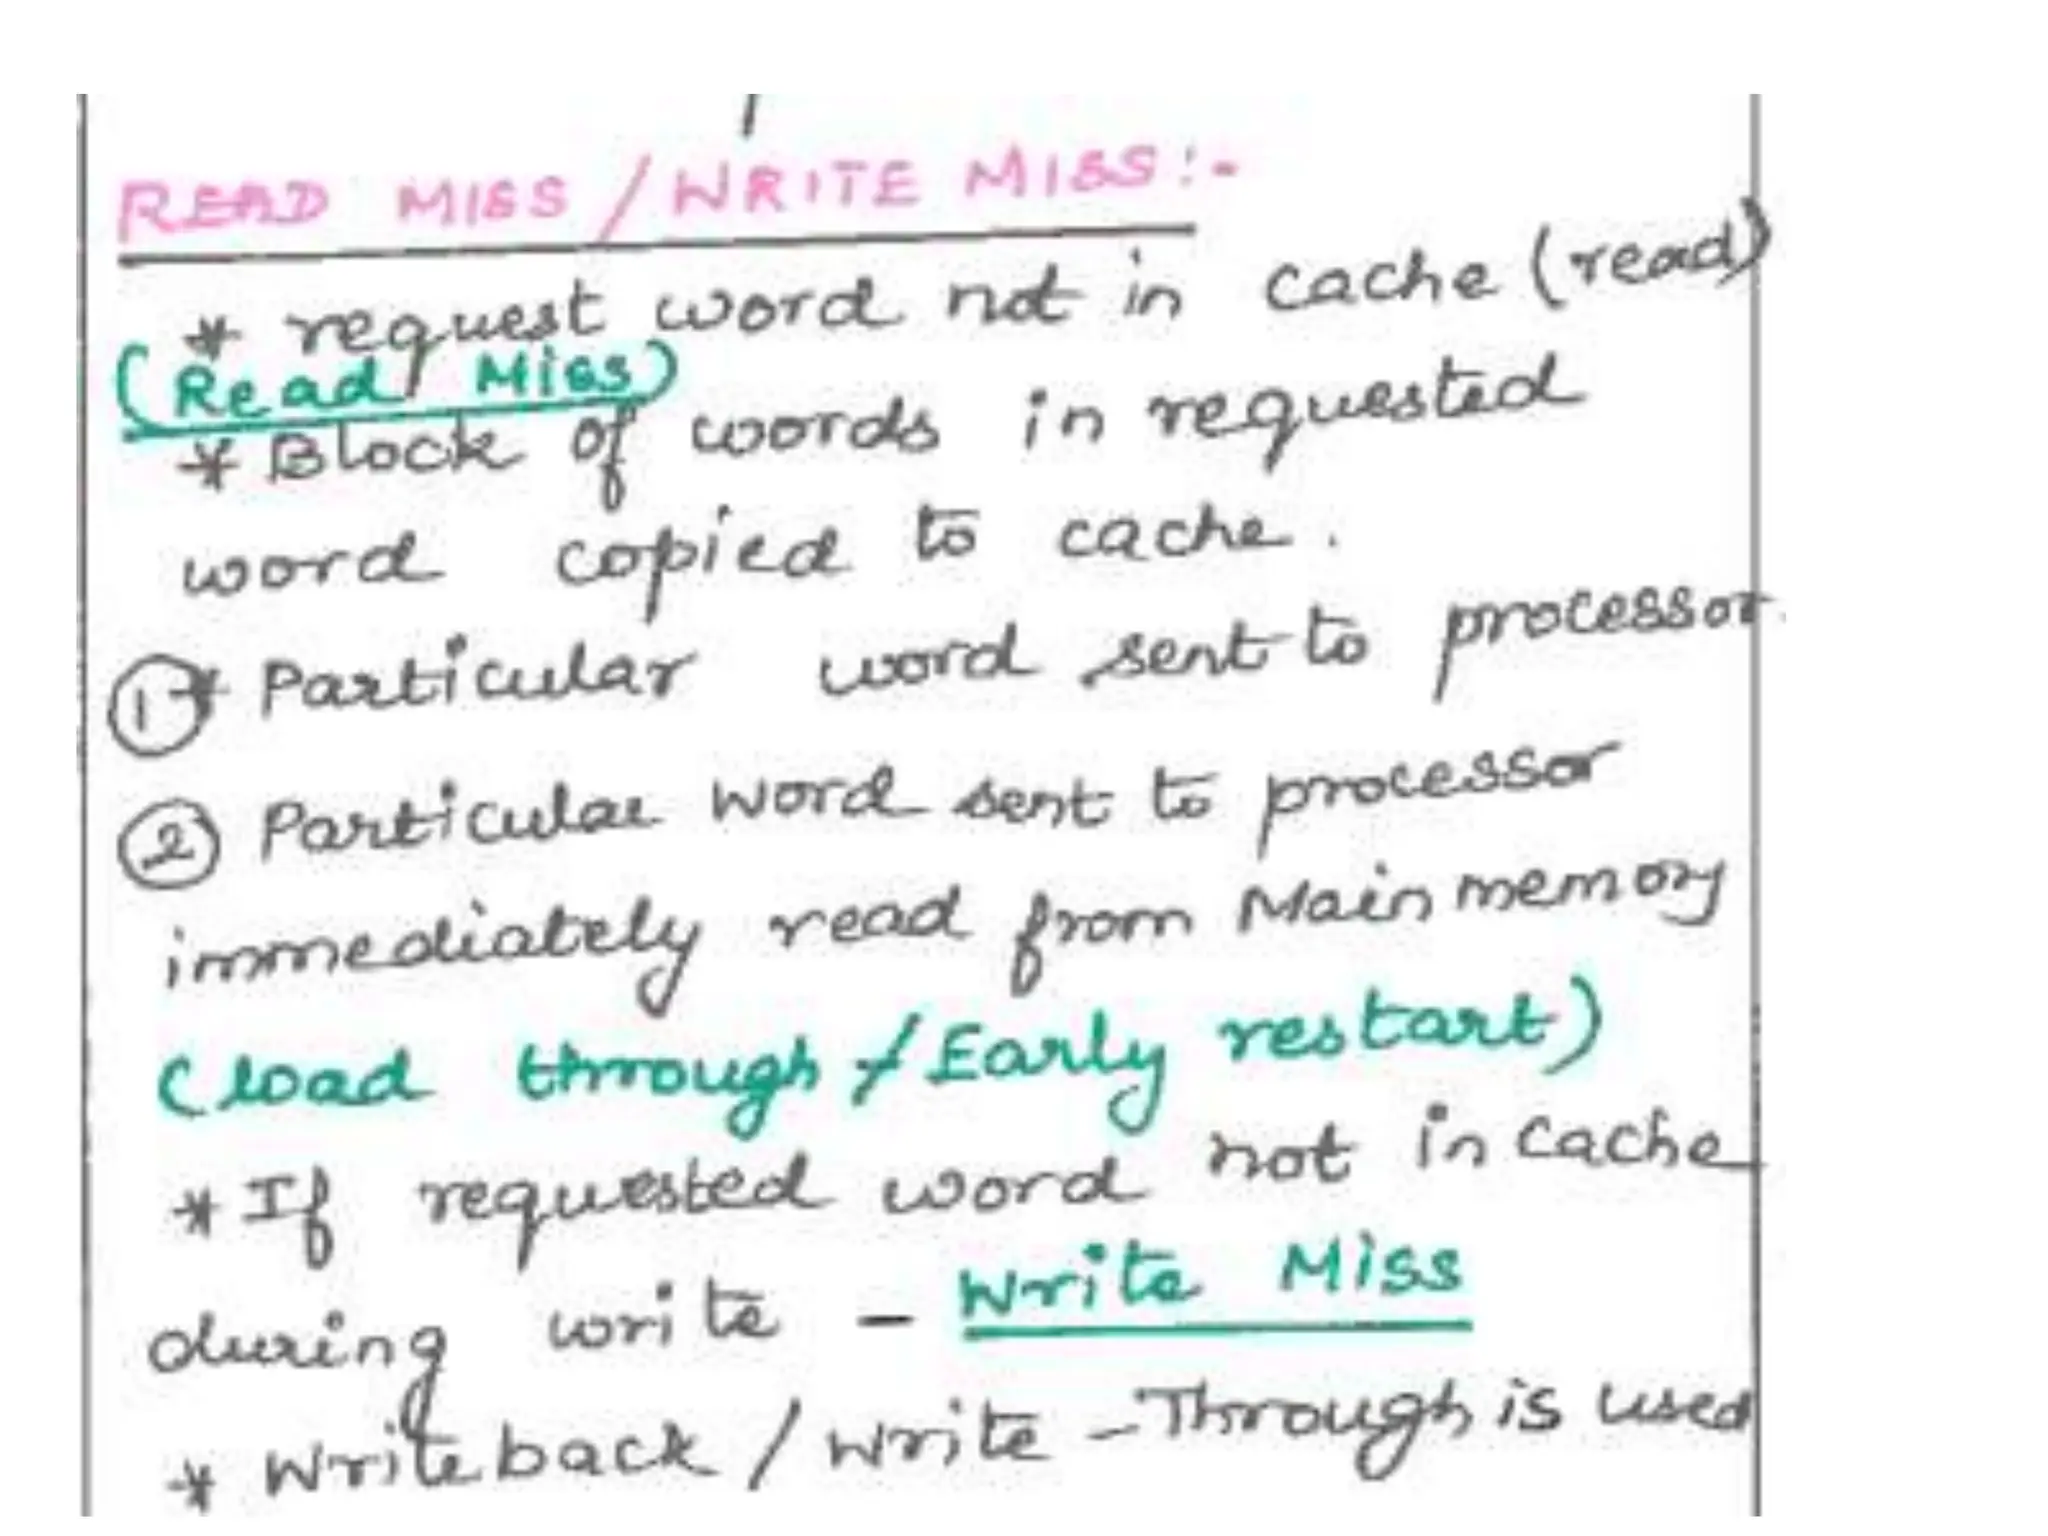 READ MISS / WRITE MISS:-
* request word not in cache (read)
(Read Miss)
* Block of words in requested
word copied to cache.
① * Particular word sent to processor.
② Particular word sent to processor
immediately read from Main memory
(load through / Early restart)
* If requested word not in cache
during write - Write Miss
* Write back / Write - Through is used